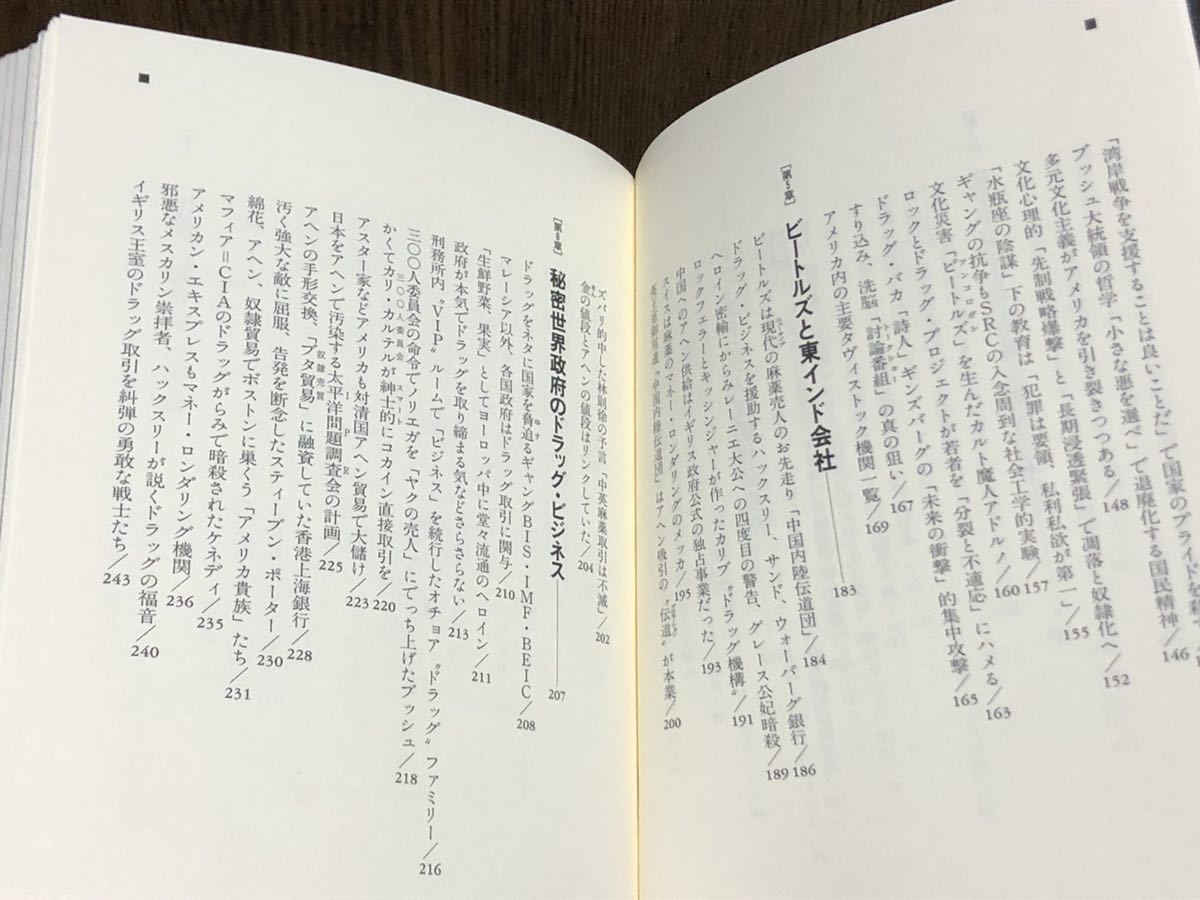 「湾岸戦争を支援することは良いことだ」で国家のプライドを
146
ブッシュ大統領の哲学「小さな悪を選べ」で退廃化する国民精神/148
多元文化主義がアメリカを引き裂きつつある/148
文化心理的「先制戦略爆撃」と「長期浸透緊張」で凋落と奴隷化へ/152
「水瓶座の陰謀」下の教育は「犯罪は要領、私利私欲が第一」/155
ギャングの抗争もSRCの入念周到な社会工学的実験/157
文化災害「ビートルズ」を生んだカルト魔人アドルノ/160
ロックとドラッグ・プロジェクトが若者を「分裂と不適応」にハメる/163
ドラッグ・バカ「詩人」ギンズバーグの「未来の衝撃」的集中攻撃/165
すり込み、洗脳「討論番組」の真の狙い/167
トークショー
アメリカ内の主要タヴィストック機関一覧/169
[第5章] ビートルズと東インド会社――183
ビートルズは現代の麻薬売人のお先走り「中国内陸伝道団」/184
ドラッグ・ビジネスを援助するハックスリー、サンド、ウォーバーグ銀行/186
ヘロイン密輸にからみレーニエ大公への四度目の警告、グレース公妃暗殺/189
ロックフェラーとキッシンジャーが作ったカリブ〝ドラッグ機構〟/191
中国へのアヘン供給はイギリス政府公式の独占事業だった/193
スイスは麻薬のマネー・ロンダリングのメッカ/195
英王室御用達「中国内陸伝道団」はアヘン吸引の〝伝道〟が本業/200
ズバリ的中した林則徐の予言「中英麻薬取引は不滅」/202
金の値段とアヘンの値段はリンクしていた/204
[第6章] 秘密世界政府のドラッグ・ビジネス――207
ドラッグをネタに国家を脅迫るギャングBIS・IMF・BEIC/208
マレーシア以外、各国政府はドラッグ取引に関与/210
「生鮮野菜、果実」としてヨーロッパ中に堂々流通のヘロイン/211
政府が本気でドラッグを取り締まる気などさらさらない/213
刑務所内〝VIP〟ルームで「ビジネス」を続行したオチョア〝ドラッグ〟ファミリー/216
三〇〇人委員会の命令でノリエガを「ヤクの売人」にでっち上げたブッシュ/218
かくてカリ・カルテルが紳士的にコカイン直接取引を/220
三〇〇人委員会 スマート
アスター家などアメリカも対清国アヘン貿易で大儲け/223
日本をアヘンで汚染する太平洋問題調査会の計画/225
IPR
アヘンの手形交換、「ブタ貿易」に融資していた香港上海銀行/228
奴隷売買
汚く強大な敵に屈服、告発を断念したスティーブン・ポーター/230
綿花、アヘン、奴隷貿易でボストンに巣くう「アメリカ貴族」たち/231
マフィア=CIAのドラッグがらみで暗殺されたケネディ/235
アメリカン・エキスプレスもマネー・ロンダリング機関/236
邪悪なメスカリン崇拝者、ハックスリーが説くドラッグの福音/240
イギリス王室のドラッグ取引を糾弾の勇敢な戦士たち/243